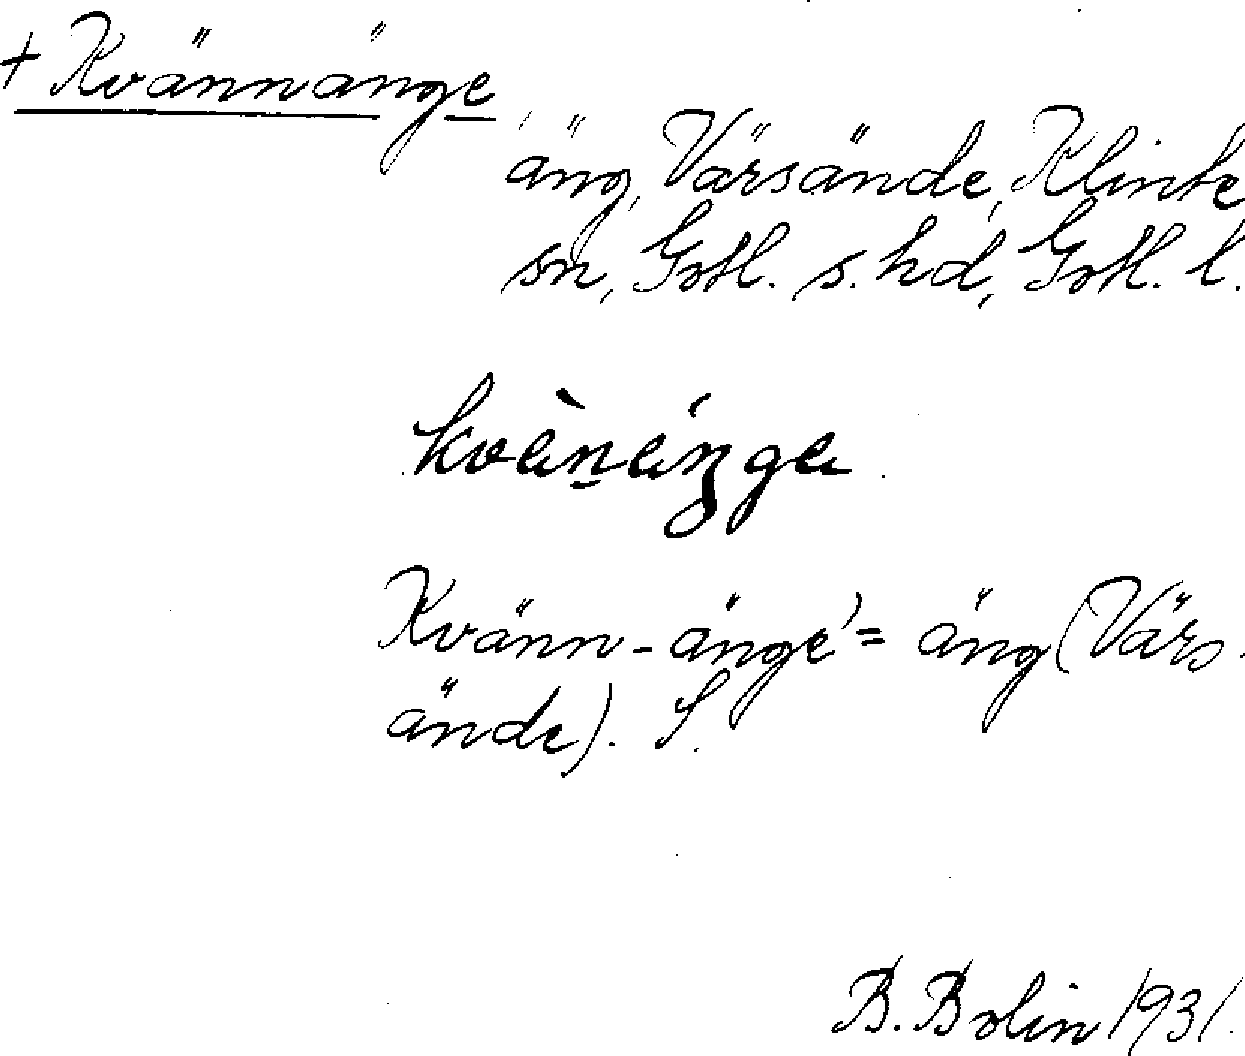 + Kvännänge
äng, Värsände, Klinte
sn, Gotl. s. hd, Gotl. l.
Kvänn-änge' = äng (Värs-
ände). S.
B. Bolin 1931.